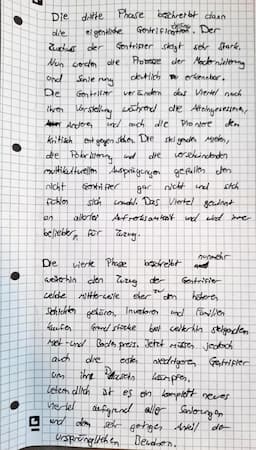 Die dritte Phase beschreibt dann
die eigentliche Gentrification. Der
Zuzug der Gentrifier steigt sehr stark.
Nun werden die Prozesse der Modernisierung
und Sanierung deutlich erkennbar.
Die Gentrifier verändern das Viertel nach
ihren Vorstellung während die Alteingesessenen,
Anderen und auch die Pioniere dem
kritisch entgegen stehen. Die steigenden Mieten,
die Polarisierung und die verschwindenden
multikulturellen Ausprägungen gefallen den
nicht Gentrifier gar nicht und sich
fühlen sich unwohl. Das Viertel gewinnt
an allerlei Aufmerksamkeit und wird immer
beliebter, für Zuzug.
Die vierte Phase beschreibt nunmehr
weiterhin den Zuzug der Gentrifier
welche mittlerweile eher zu den höheren
Schichten gehören. Investoren und Familien
kaufen Grundstücke bei weiterhin steigenden
Miet- und Bodenpreise. Jetzt müssen jedoch
auch die ersten niedrigeren Gentrifier
um ihr Dasein kämpfen.
Letztendlich ist es ein komplett neues
Viertel aufgrund aller Sanierungen
und dem sehr geringen Anteil der
ursprünglichen Bewohner.